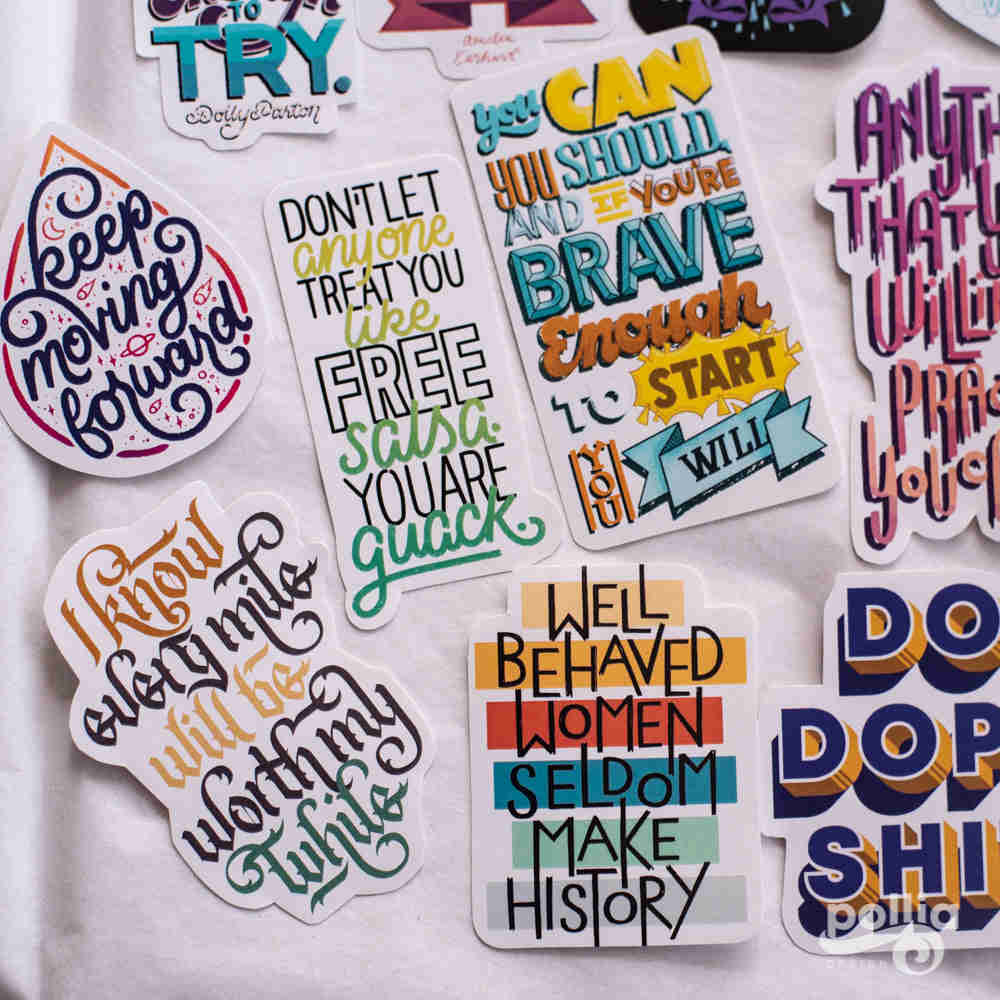 TO
TRY.
Dolly Parton
Amelia
Earhart
keep
moving
forward.
DON'T LET
anyone
TREAT YOU
like
FREE
salsa.
YOU ARE
guack.
you CAN
YOU SHOULD,
AND IF YOU'RE
BRAVE
Enough
TO START
YOU WILL
I know
every mile
will be
worth my
while
WELL
BEHAVED
WOMEN
SELDOM
MAKE
HISTORY
DO
DOP
SHI
pollia
DESIGN